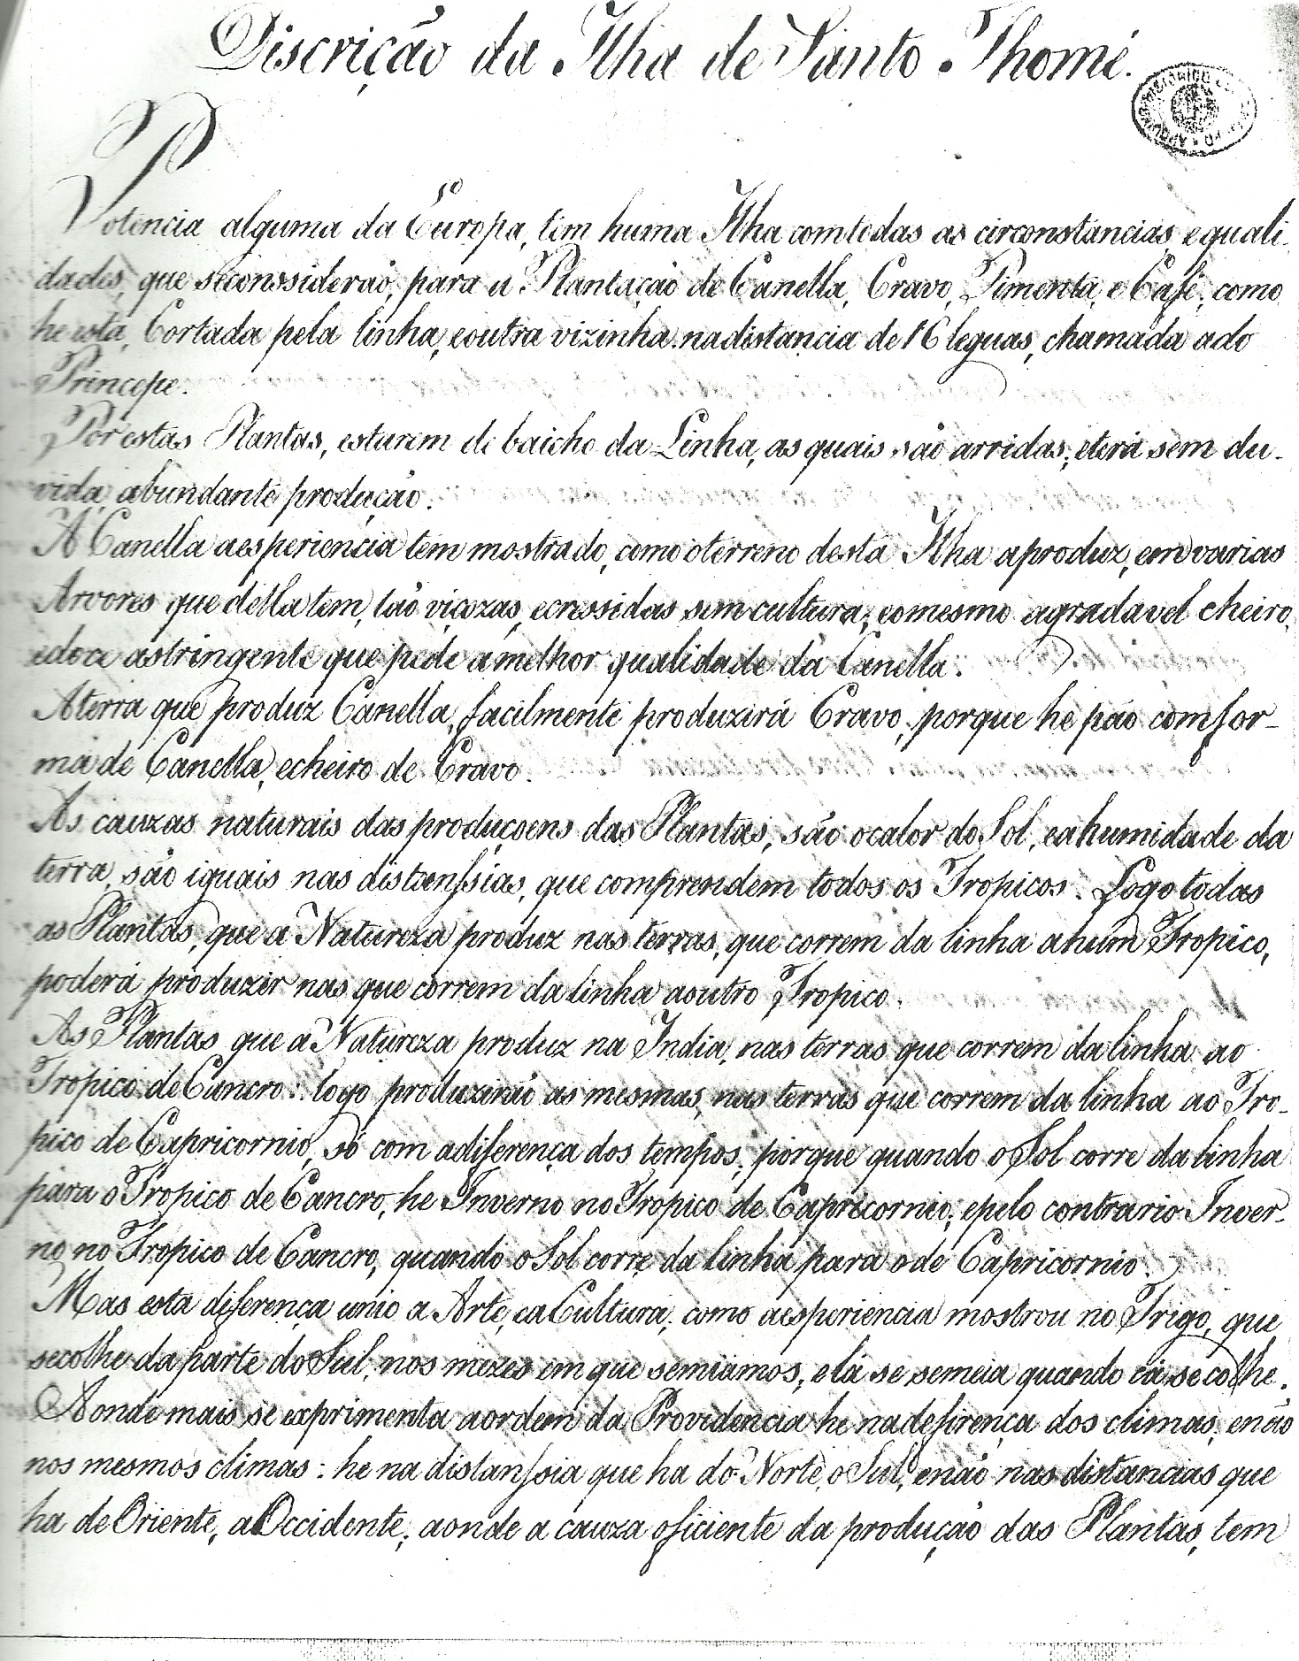 Discrição da Ilha de Santo Thomé.
ARQUIVO HISTORICO
Potencia alguma da Europa, tem huma Ilha comtodas as circonstancias, equali-
dades, que seconssideraõ, para a Plantação de Canella, Cravo, Pimenta, e Café, como
he esta, Cortada pela linha, eoutra vizinha nadistancia de 16 leguas, chamada ado
Princepe.
Por estas Plantas, estarem de baicho da Linha, as quais são arridas; eterá sem du-
vida, abundante produção.
A Canella aesperiencia tem mostrado, como oterreno desta Ilha aproduz, em varias
Arvores que della tem, tão viçozas, ecressidas sem cultura; eomesmo agradavel cheiro,
edoce astringente que pede amelhor qualidade da Canella.
Aterra que produz Canella, facilmente produzirá Cravo; porque he páo comfor-
ma de Canella, echeiro de Cravo.
As cauzas naturais das produçoens das Plantas, são ocalor do Sol, eahumidade da
terra, são iguais nas distanssias, que comprendem todos os Tropicos: Logo todas
as Plantas, que a Natureza produz nas terras, que correm da linha ahum Tropico,
poderá produzir nas que correm da linha aoutro Tropico.
As Plantas que a Natureza produz na India, nas terras que correm da linha ao
Tropico de Cancro: logo produzirão as mesmas, nas terras que correm da linha ao Tro-
pico de Capricornio, só com adiferença dos tempos; porque quando o Sol corre da linha
para o Tropico de Cancro, he Inverno no Tropico de Capricornio; epelo contrario Inver-
no no Tropico de Cancro, quando o Sol corre da linha para o de Capricornio.
Mas esta diferença unio a Arte, ea Cultura; como aesperiencia mostrou no Trigo, que
secolhe da parte do Sul, nos mezes em que semiamos, elá se semeia quando cá se colhe.
Aonde mais se exprimenta aordem da Providencia he nadefirença dos climas, enão
nos mesmos climas: he na distanssia que ha do Norte, o Sul, enão nas distancias que
ha de Oriente, a Occidente; aonde a cauza oficiente da produção das Plantas, tem